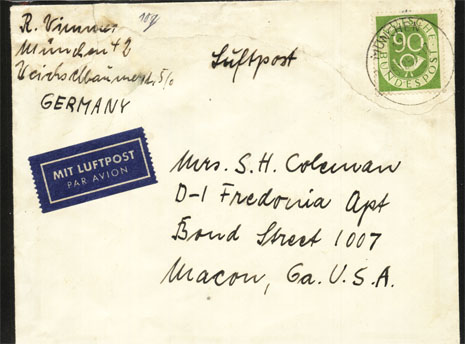 R. Vimmer
München 42
5/0
GERMANY
189
Luftpost
DEUTSCHE
90
BUNDESPOST
MÜNCHEN
MIT LUFTPOST
PAR AVION
Mrs. S.H. Coleman
D-1 Fredonia Apt
Bond Street 1007
Macon, Ga. U.S.A.